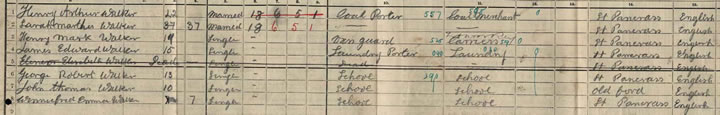 1 Henry Arthur Walker 37 Married 18 6 5 1 Coal Porter 557 Coal Merchant St Pancras English
2 Sarah Martha Walker 37 37 Married 18 6 5 1 St Pancras English
3 Henry Mark Walker 19 Single - Van guard Carriers St Pancras English
4 James Edward Walker 15 Single - Laundry Porter Laundry St Pancras English
5 Elenor Elizabeth Walker Dead Single - Dead St Pancras English
6 George Robert Walker 13 Single - School School St Pancrass English
7 John Thomas Walker 10 Single - School School Old Ford English
8 Winnifred Emmer Walker 7 Single - School School St Pancrass English